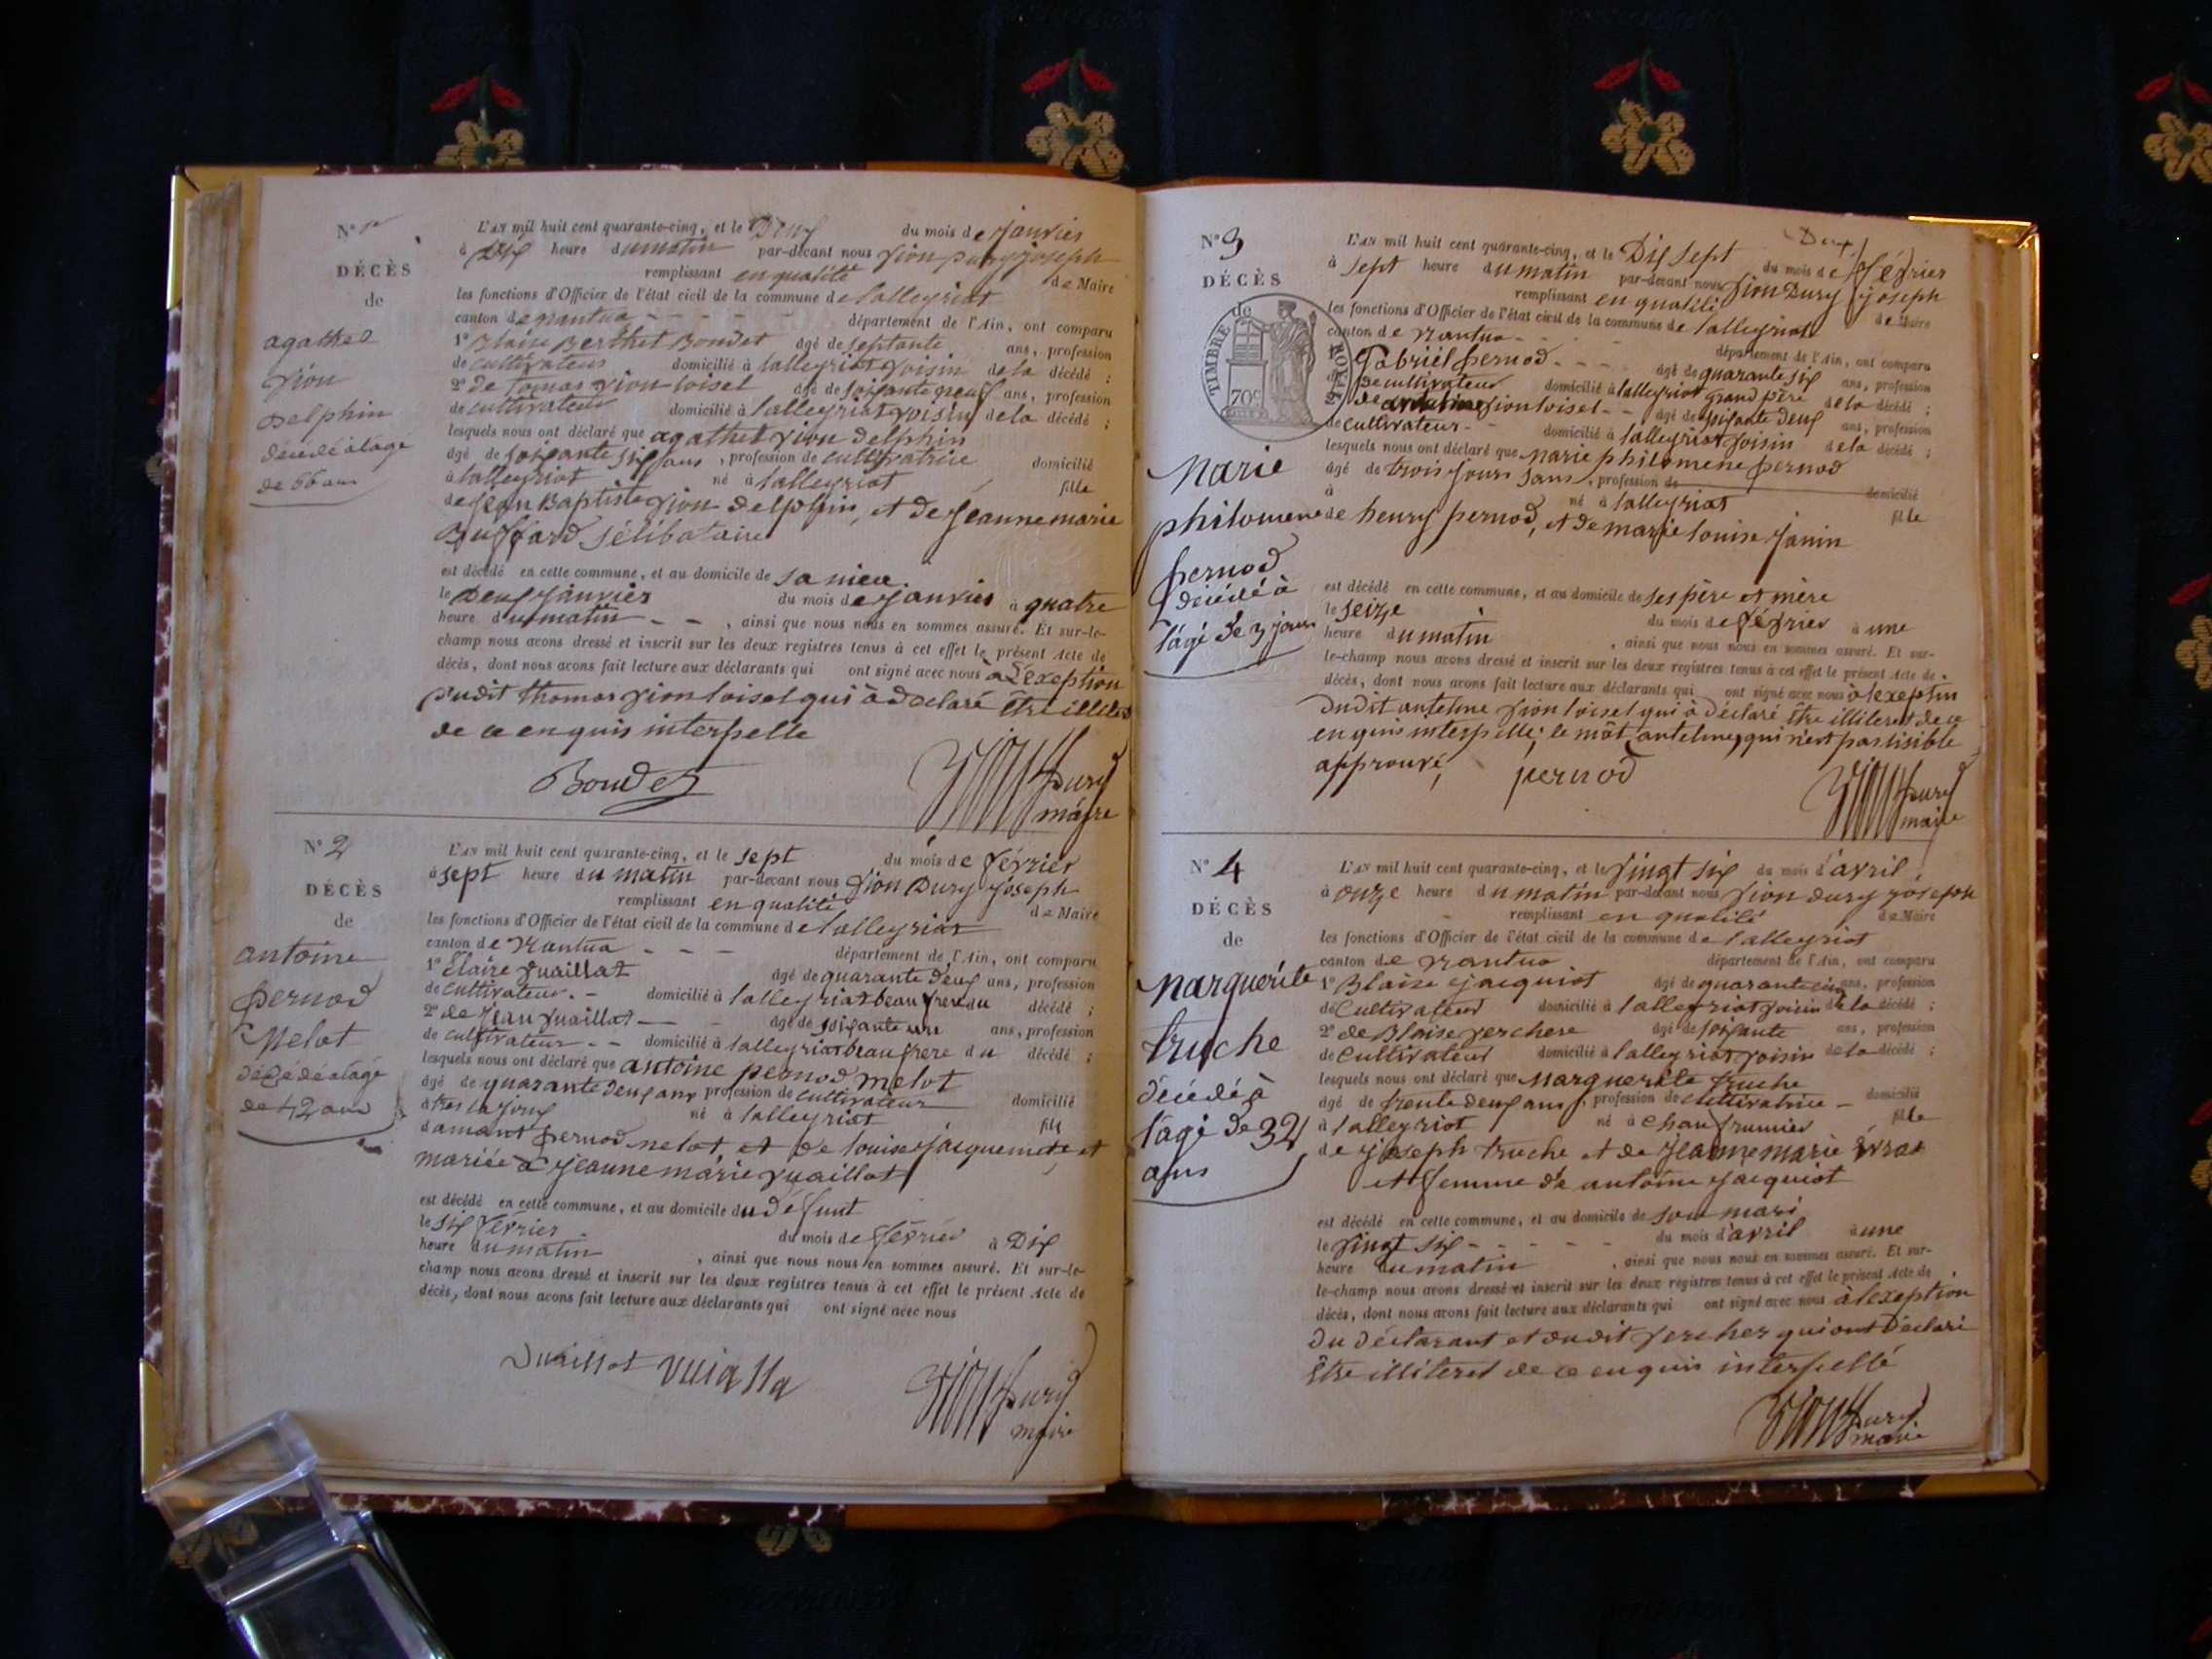 N° 1er
DÉCÈS
de
agathe
vion
Delphin
décédé a lage
de 66 ans
L'AN mil huit cent quarante-cinq, et le Deux du mois de janvier
à Dix heure du matin par-devant nous vion Dury joseph
remplissant en qualité de Maire
les fonctions d'Officier de l'état civil de la commune de lalleyriat
canton de nantua - - - - - département de l'Ain, ont comparu
1° Blaise Berthet Bondet âgé de septante ans, profession
de cultivateur domicilié à lalleyriat voisin de la décédé ;
2° de Tomas vion loisel âgé de soixante neuf ans, profession
de cultivateur domicilié à lalleyriat voisin de la décédé ;
lesquels nous ont déclaré que agathe vion Delphin
âgé de soixante six ans, profession de cultivatrice domicilié
à lalleyriat né à lalleyriat fille
de jean Baptiste vion delphin, et de jeanne marie
Buffard sélibataire
est décédé en cette commune, et au domicile de sa niece.
le Deux janvier du mois de janvier à quatre
heure du matin - - , ainsi que nous nous en sommes assuré. Et sur-le-
champ nous avons dressé et inscrit sur les deux registres tenus à cet effet le présent Acte de
décès, dont nous avons fait lecture aux déclarants qui ont signé avec nous à L'éxeption
dudit thomas vion loisel qui à declaré être
de ce enquis interpelle
Bondet vion Dury
maire
N° 2
DÉCÈS
de
antoine
pernod
Melot
décédé a lage
de 42 ans
L'AN mil huit cent quarante-cinq, et le sept du mois de février
à sept heure du matin par-devant nous vion Dury joseph
remplissant en qualité de Maire
les fonctions d'Officier de l'état civil de la commune de lalleyriat
canton de nantua - - - département de l'Ain, ont comparu
1° Claire vuaillat âgé de quarante deux ans, profession
de cultivateur. - domicilié à lalleyriat beau frere du décédé ;
2° de jean vuaillat - - âgé de soixante un ans, profession
de cultivateur - - domicilié à lalleyriat beau frere du décédé ;
lesquels nous ont déclaré que antoine pernod melot
âgé de quarante deux ans profession de cultivateur domicilié
à né à lalleyriat fils
pernod melot, et de louise jacquemet, et
mariée a jeanne marie vuaillat
est décédé en cette commune, et au domicile du défunt
le six février du mois de février à Dix
heure du matin , ainsi que nous nous en sommes assuré. Et sur-le-
champ nous avons dressé et inscrit sur les deux registres tenus à cet effet le présent Acte de
décès, dont nous avons fait lecture aux déclarants qui ont signé avec nous
vuaillat vion Dury
maire
Deux
N° 3
DÉCÈS
de
TIMBRE ROYAL
70c
Marie
philomene
pernod
décédé à
l'âge de 3 jours
L'AN mil huit cent quarante-cinq, et le Dix sept du mois de février
à sept heure du matin par-devant nous vion Dury joseph
remplissant en qualité de Maire
les fonctions d'Officier de l'état civil de la commune de lalleyriat
canton de nantua - - - - département de l'Ain, ont comparu
1° Gabriel pernod - - - âgé de quarante six ans, profession
de cultivateur domicilié à lalleyriat grand père de la décédé ;
2° de antelme vion loisel - - âgé de soixante deux ans, profession
de cultivateur - - domicilié à lalleyriat voisin de la décédé ;
lesquels nous ont déclaré que marie philomene pernod
âgé de trois jours sans, profession de domicilié
à né à lalleyriat fille
de henry pernod, et de marie louise janin
est décédé en cette commune, et au domicile de ses père et mère
le seize du mois de février à une
heure du matin , ainsi que nous nous en sommes assuré. Et sur-
le-champ nous avons dressé et inscrit sur les deux registres tenus à cet effet le présent Acte de
décès, dont nous avons fait lecture aux déclarants qui ont signé avec nous à lexeption
Dudit antelme vion loisel qui à déclaré être illiteret de ce
enquis interpellé; le môt antelme, qui n'est pas lisible
approuvé, pernod vion Dury
maire
N° 4
DÉCÈS
de
Marguerite
truche
décédé à
l'âgé de 32
ans
L'AN mil huit cent quarante-cinq, et le vingt six du mois d'avril,
à onze heure du matin par-devant nous vion dury joseph
remplissant en qualité de Maire
les fonctions d'Officier de l'état civil de la commune de lalleyriat
canton de nantua département de l'Ain, ont comparu
1° Blaise jacquiot âgé de quarante cinq ans, profession
de Cultivateur domicilié à lalleyriat voisin de la décédé ;
2° de Blaise verchere âgé de soixante ans, profession
de Cultivateur domicilié à lalleyriat voisin de la décédé ;
lesquels nous ont déclaré que Marguerite truche
âgé de trente deux ans, profession de cultivatrice - domicilié
à lalleyriat né à Chaufrumier fille
de joseph truche et de jeanne marie évrat
et femme de antoine jacquiot
est décédé en cette commune, et au domicile de son mari
le vingt six - - - - - du mois d'avril à une
heure du matin , ainsi que nous nous en sommes assuré. Et sur-
le-champ nous avons dressé et inscrit sur les deux registres tenus à cet effet le présent Acte de
décès, dont nous avons fait lecture aux déclarants qui ont signé avec nous à lexeption
Du déclarant et dudit vercher qui ont déclaré
être illiteret de ce enquis interpellé
vion Dury
maire